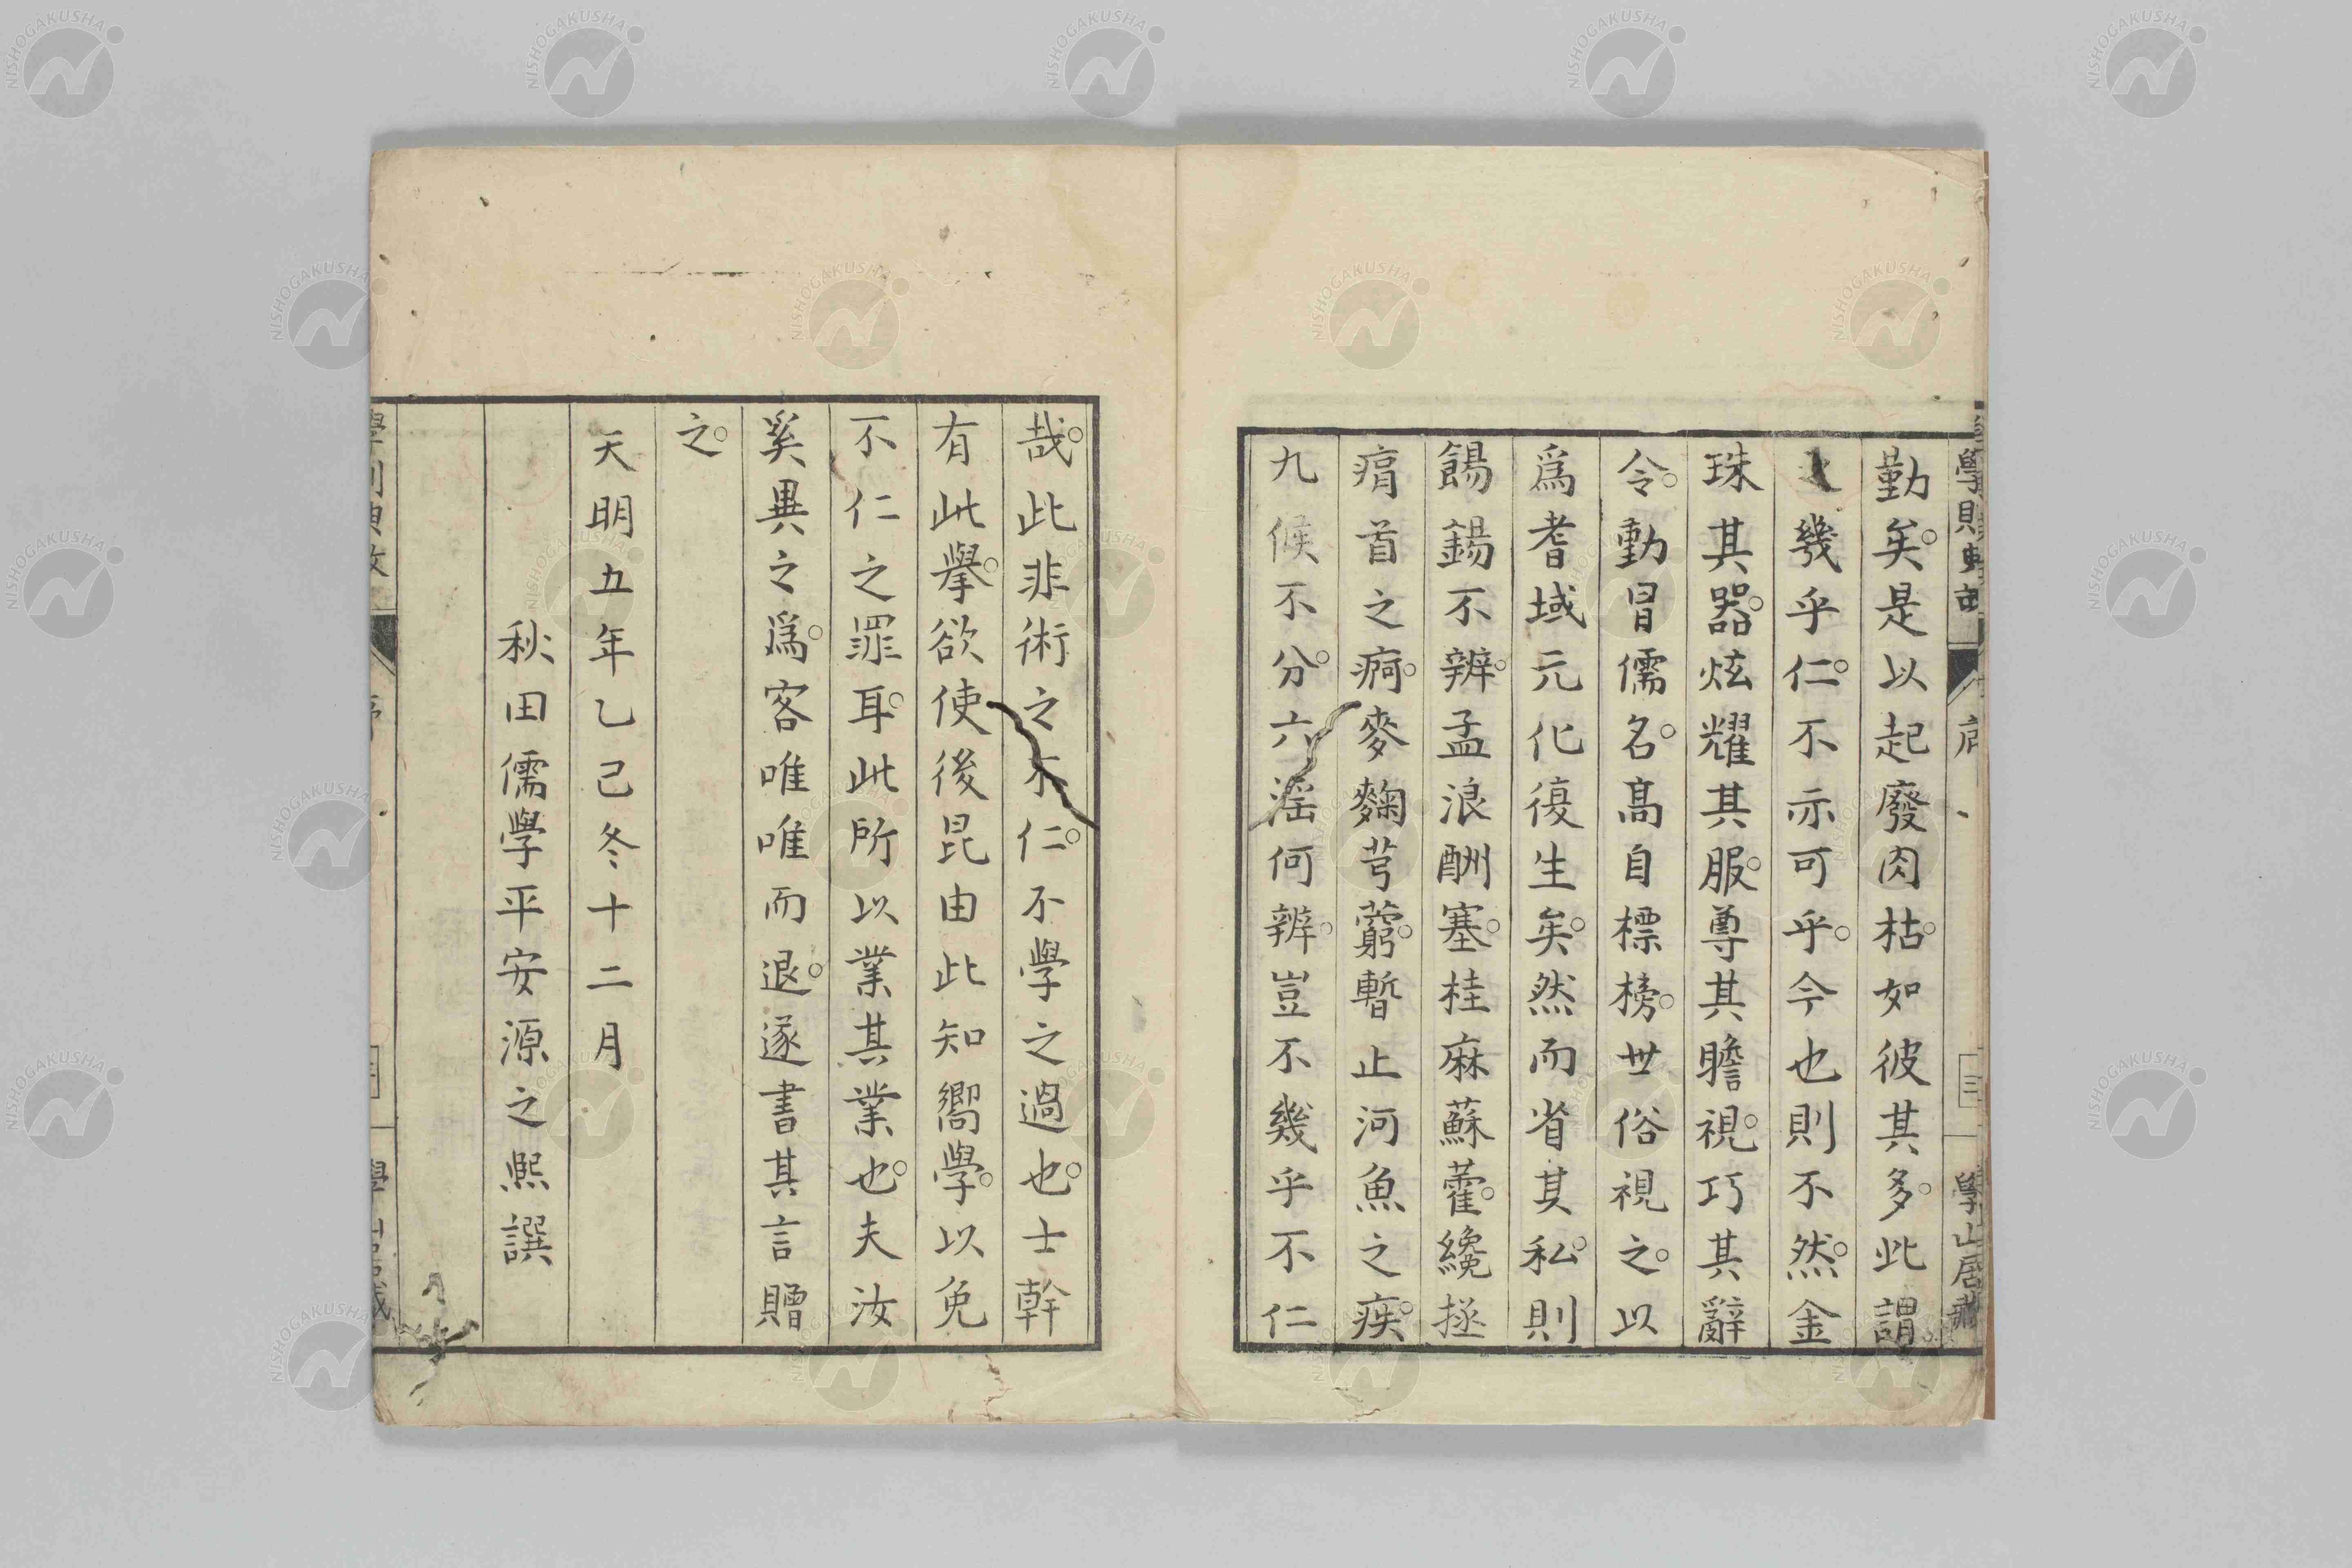 勤矣。是以起廢肉枯。如彼其多。此謂
幾乎仁。不亦可乎。今也則不然。金
珠其器。炫耀其服。尊其瞻視。巧其辭
令。動冒儒名。高自標榜。世俗視之。以
爲耆域元化復生矣。然而省其私。則
餳錫不辨。孟浪酬塞。桂麻蘇藿。纔拯
痟首之痾。麥麴芎藭。暫止河魚之疾。
九候不分。六淫何辨。豈不幾乎不仁
哉。此非術之不仁。不學之過也。士幹
有此擧。欲使後昆由此知嚮學。以免
不仁之罪耳。此所以業其業也。夫汝
奚異之爲。客唯唯而退。遂書其言贈
之。
天明五年乙己冬十二月
秋田儒學平安源之熙譔
序
三
學山居藏
NISHOGAKUSHA